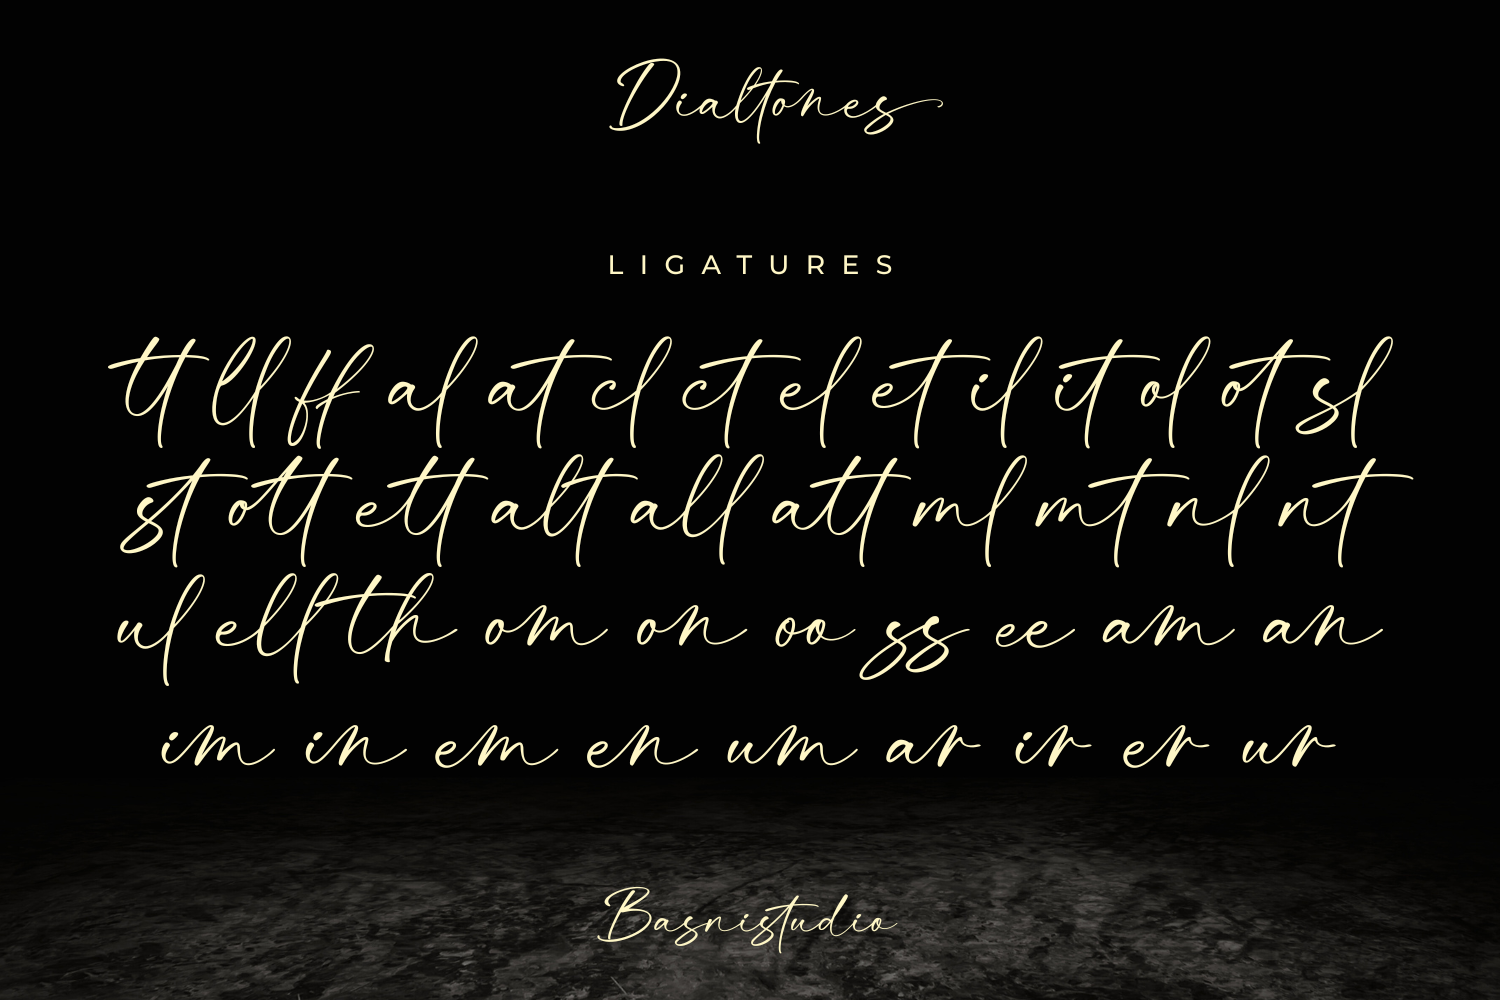 Dialtones
LIGATURES
tt ll ff al at cl ct el et il it ol ot sl
st ott ett alt all att ml mt nl nt
ul ell th om on oo ss ee am an
im in em en um ar ir er ur
Basnistudio